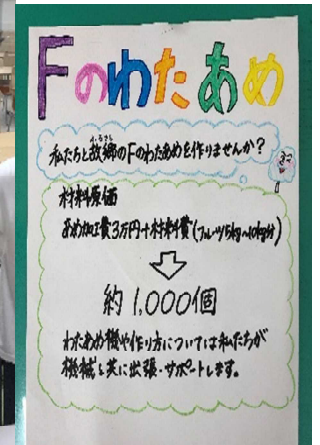 Fのわたあめ
私たちと故郷のFのわたあめを作りませんか?
ふるさと
材料原価
あめ加工費3万円+材料費(フルーツ5kg~10kg分)
約1,000個
わたあめ機や作り方については私たちが
機械と共に出張・サポートします。